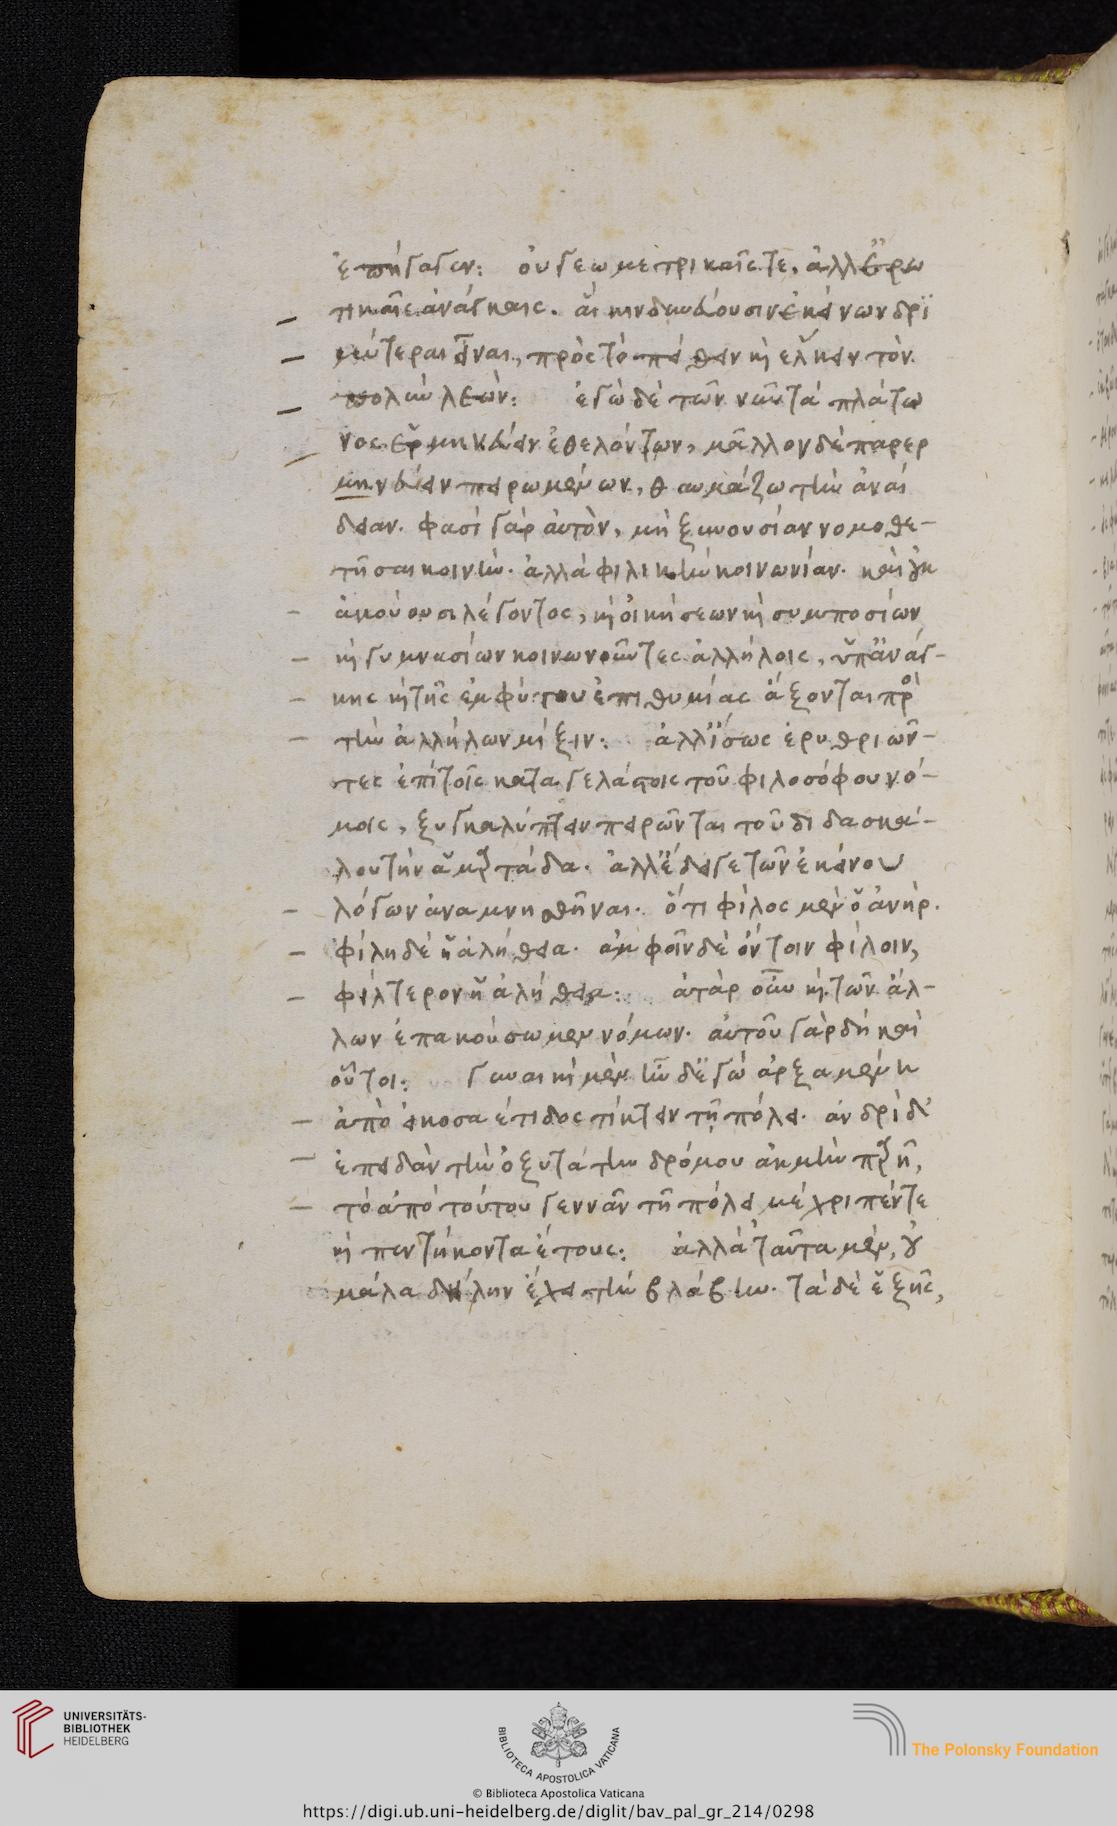 ἐπήγαγεν: οὐ γεωμετρικαῖς γε, ἀλλ' ἐρω
τικαῖς ἀνάγκαις. αἳ κινδυνεύουσιν ἐκείνων δρι
μεύτεραι εἶναι, πρὸς τὸ πείθειν καὶ ἕλκειν τὸν
πολὺν λεών: ἐγὼ δὲ τῶν νῦν τὰ πλάτω
νος ἑρμηνεύειν ἐθελόντων, μᾶλλον δὲ παρερ
μηνεύειν πειρωμένων, θαυμάζω τὴν ἀναί
δειαν. φασὶ γὰρ αὐτὸν, μὴ ξυνουσίαν νομοθε-
τῆσαι κοινὴν. ἀλλὰ φιλικὴν κοινωνίαν. καὶ οὐκ
ἀκούουσι λέγοντος, καὶ οἰκήσεων καὶ συμποσίων
καὶ γυμνασίων κοινωνοῦντες ἀλλήλοις, ὑπ' ἀνάγ-
κης καὶ τῆς ἐμφύτου ἐπιθυμίας ἄξονται πρὸ
τὴν ἀλλήλων μίξιν: ἀλλ' ἴσως ἐρυθριῶν-
τες ἐπὶ τοῖς καταγελάστοις τοῦ φιλοσόφου νό-
μοις, ξυγκαλύπτειν πειρῶνται τοῦ διδασκά-
λου τὴν ἁμαρτάδα. ἀλλ' ἔδει γε τῶν ἐκείνου
λόγων ἀναμνησθῆναι. ὅτι φίλος μὲν ὁ ἀνὴρ.
φίλη δὲ ἡ ἀλήθεια. ἀμφοῖν δὲ ὄντοιν φίλοιν,
φίλτερον ἡ ἀλήθεια: ἀτὰρ οὖν καὶ τῶν ἄλ-
λων ἐπακούσωμεν νόμων. αὐτοῦ γὰρ δὴ καὶ
οὗτοι: γυναικὶ μὲν ἦν δ' ἐγὼ ἀρξαμένη
ἀπὸ εἰκοσαέτιδος τίκτειν τῇ πόλει. ἀνδρὶ δ'
ἐπειδὰν τὴν ὀξυτάτην δρόμου ἀκμὴν παρῇ,
τὸ ἀπὸ τούτου γεννᾶν τῇ πόλει μέχρι πέντε
καὶ πεντήκοντα ἔτους: ἀλλὰ ταῦτα μὲν, οὐ
μάλα δήλην ἔχει τὴν βλάβην. τὰ δὲ ἑξῆς,
UNIVERSITÄTS-
BIBLIOTHEK
HEIDELBERG
BIBLIOTECA APOSTOLICA VATICANA
The Polonsky Foundation
© Biblioteca Apostolica Vaticana
https://digi.ub.uni-heidelberg.de/diglit/bav_pal_gr_214/0298